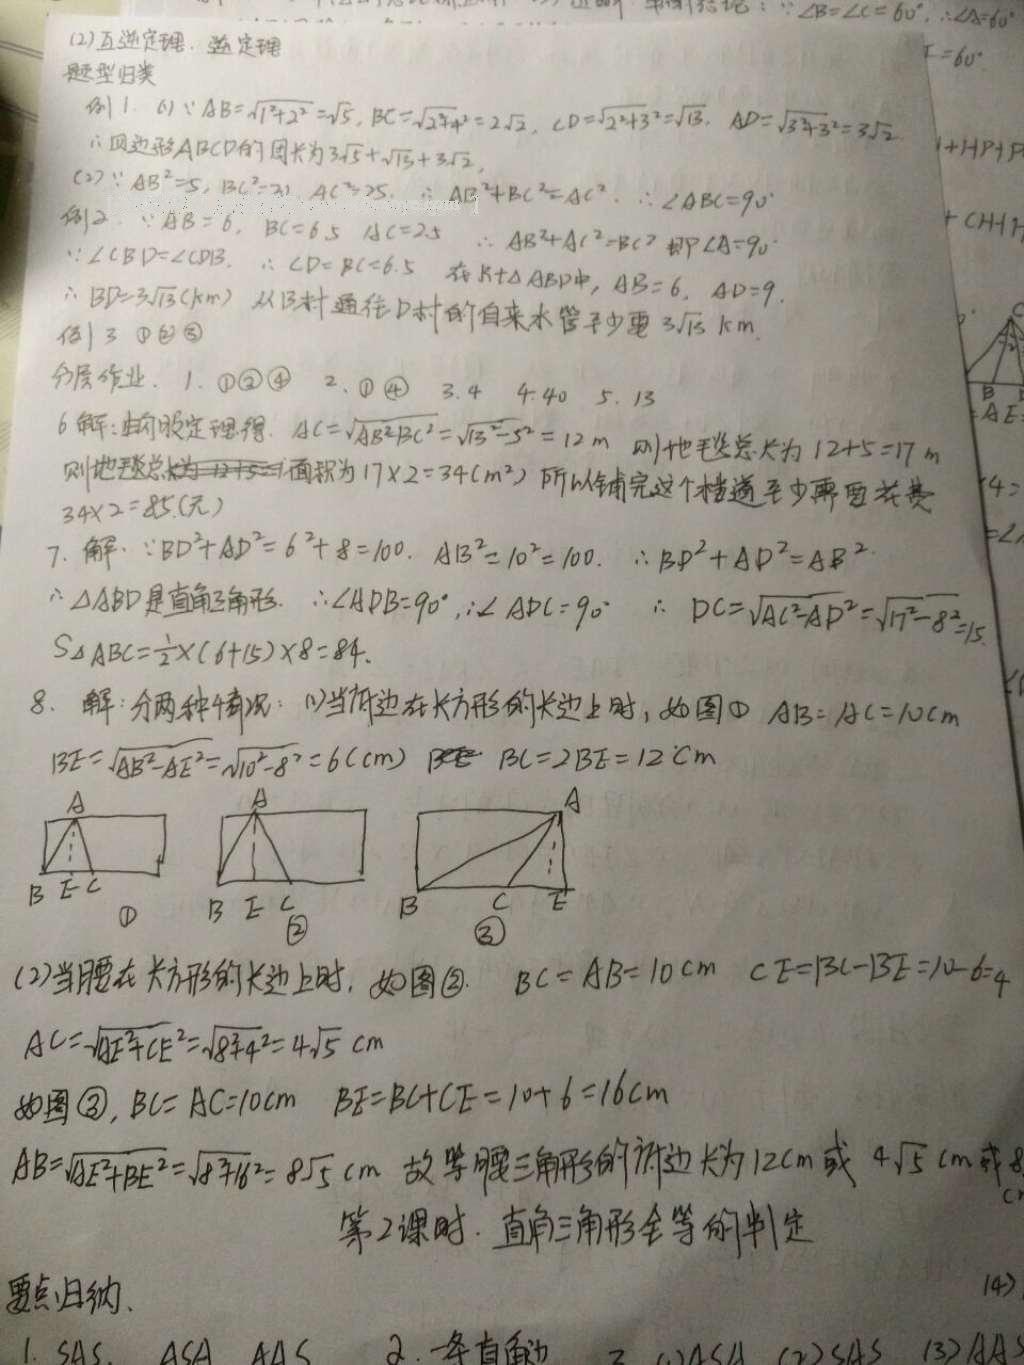 ∠B=∠C=60°, ∴∠A=60°
=60°
(2)互逆定理. 逆定理
题型归类
例1. (1)∵AB=√1²+2²=√5, BC=√2²+4²=2√2, CD=√2²+3²=√13. AD=√3²+3²=3√2.
∴四边形ABCD的周长为3√5+√13+3√2,
+HP+P
(2)∵AB²=5, BC²=20 AC²=25. ∴ AB²+BC²=AC². ∴∠ABC=90°
例2. ∵AB=6, BC=6.5 AC=2.5 ∴ AB²+AC²=BC² 即∠A=90°
+CH+H
∵∠CBD=∠CDB. ∴ CD=BC=6.5 在Rt△ABD中, AB=6, AD=9.
∴BD=3√13(km) 从B村通往D村的自来水管至少要3√13 km.
例3 ①②③
B
AE=
分层作业. 1. ①②④ 2. ①④ 3.4 4.40 5.13
6解:由勾股定理得. AC=√AB²-BC²=√13²-5²=12m 则地毯总长为12+5=17m
则地毯总面积为17×2=34(m²) 所以铺完这个楼道至少需要花费
34×2=85(元)
7. 解. ∵BD²+AD²=6²+8=100. AB²=10²=100. ∴BD²+AD²=AB².
∴△ABD是直角三角形. ∴∠ADB=90°,∴∠ADC=90° ∴ DC=√AC²-AD²=√17²-8²=15.
S△ABC=½×(6+15)×8=84.
8. 解:分两种情况: (1)当底边在长方形的长边上时,如图① AB=AC=10cm
BE=√AB²-AE²=√10²-8²=6(cm) BC=2BE=12cm
A A A
B E C B E C B C E
① ② ③
(2)当腰在长方形的长边上时, 如图②. BC=AB=10cm CE=BC-BE=10-6=4
AC=√AE²+CE²=√8²+4²=4√5 cm
如图③, BC=AC=10cm BE=BC+CE=10+6=16cm
AB=√AE²+BE²=√8²+16²=8√5 cm 故等腰三角形的底边长为12cm或 4√5 cm或8
第2课时. 直角三角形全等的判定
要点归纳. (4)
1. SAS. ASA AAS 2. 一条直角边 3. (1)ASA (2)SAS (3)AAS